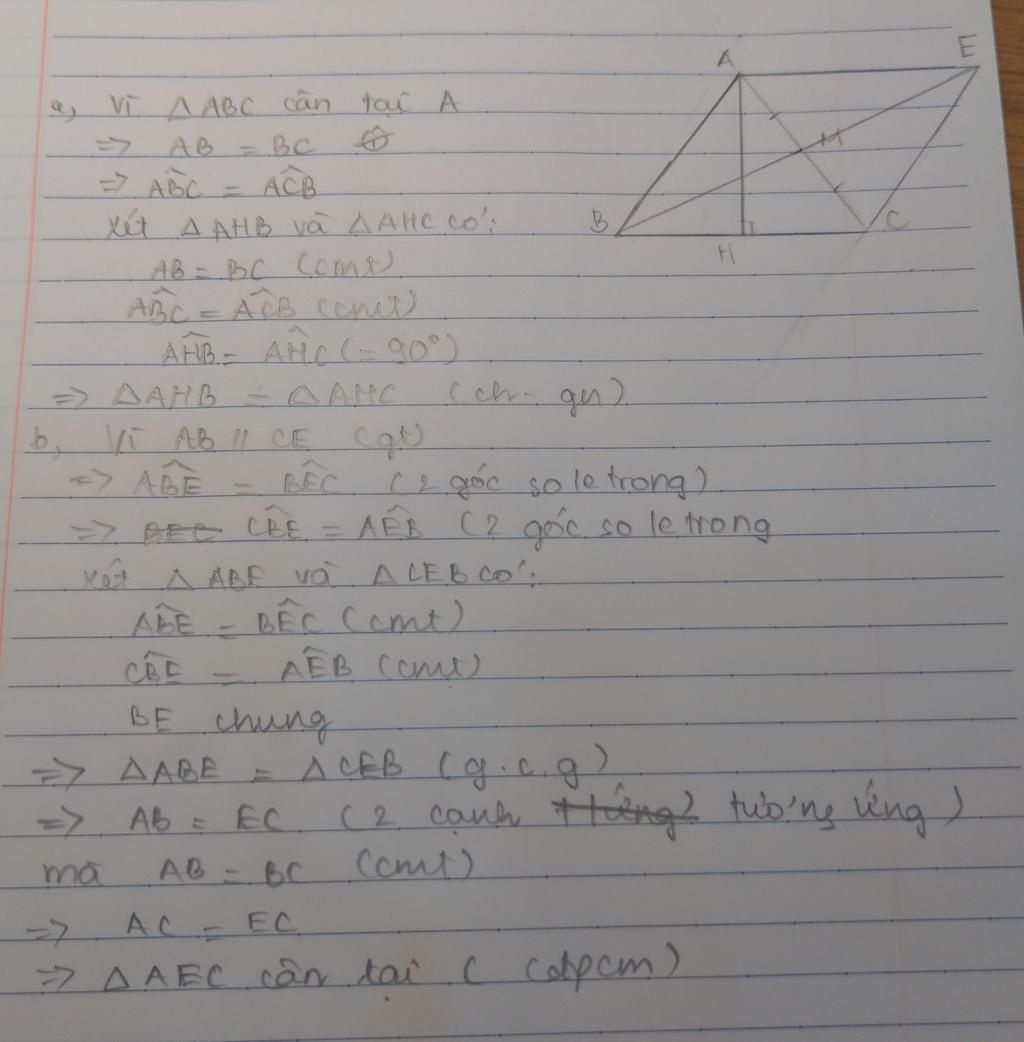 A
E
M
B
C
H
a, Vì △ABC cân tại A
=> AB = BC
=> ABC = ACB
Xét △AHB và △AHC có:
AB = BC (cmt)
ABC = ACB (cmt)
AHB = AHC (= 90°)
=> △AHB = △AHC (ch - gn)
b, Vì AB // CE (gt)
=> ABE = BEC (2 góc so le trong)
=> BEC CBE = AEB (2 góc so le trong
Xét △ABE và △CEB có:
ABE = BEC (cmt)
CBE = AEB (cmt)
BE chung
=> △ABE = △CEB (g.c.g)
=> AB = EC (2 cạnh tương ứng)
mà AB = BC (cmt)
=> AC = EC
=> △AEC cân tại C (đpcm)